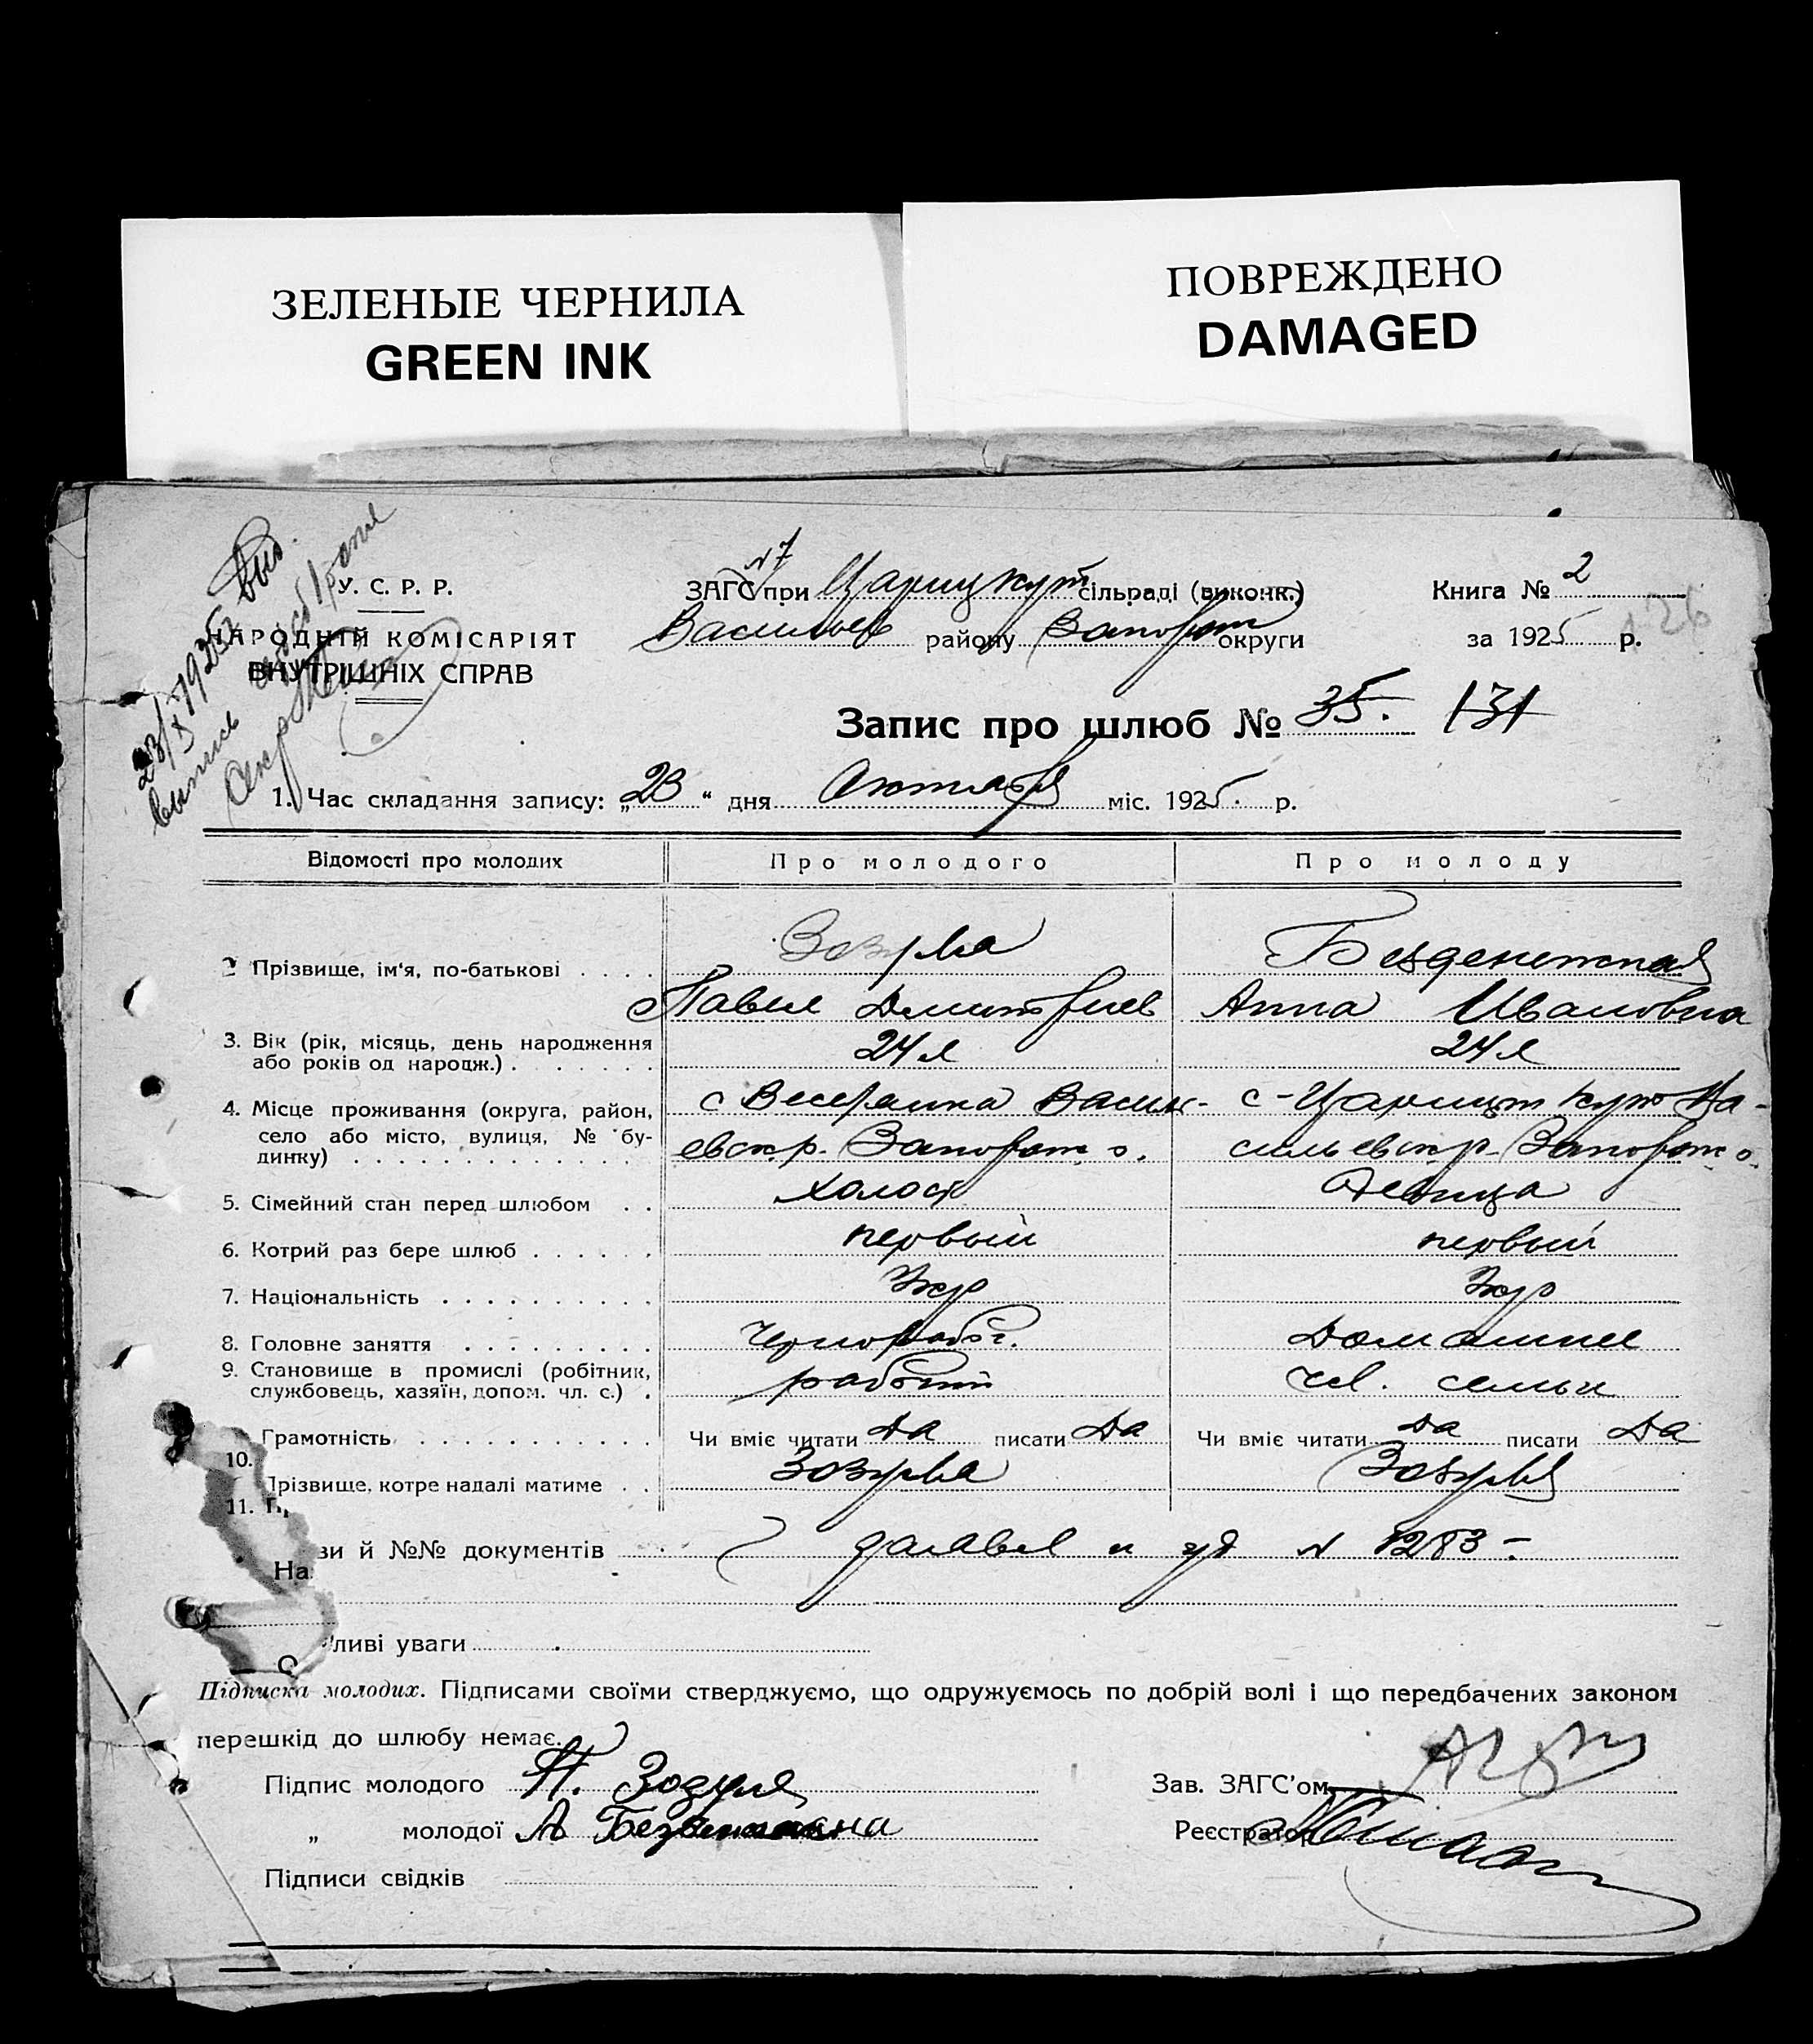 ЗЕЛЕНЫЕ ЧЕРНИЛА
GREEN INK
ПОВРЕЖДЕНО
DAMAGED
23/X 1925 Выд.
выпись
У. С. Р. Р.
НАРОДНІЙ КОМІСАРІЯТ
ВНУТРІШНІХ СПРАВ
N7
ЗАГС при Царицкут сільраді (виконк.)
Васильев району Запорож округи
Книга № 2
за 1925 р. 126
Запис про шлюб № 35. 131
1. Час складання запису: „23“ дня Октября міс. 1925. р.
Відомості про молодих Про молодого Про молоду
2 Прізвище, ім'я, по-батькові . . . . Зозуля Безденежная
Павел Дмитриев Анна Ивановна
3. Вік (рік, місяць, день народження 24 л 24 л
або років од народж.) . . . . . . .
4. Місце проживання (округа, район, с Васил- с-Царицын кут Ва-
село або місто, вулиця, № бу- евск.р. Запорож о. сильевск р. Запорож о.
динку) . . . . . . . . . . . . . .
5. Сімейний стан перед шлюбом . . холост Девица
6. Котрий раз бере шлюб . . . . . . первый первый
7. Національність . . . . . . . . . . Укр Укр
8. Головне заняття . . . . . . . . . Чернораб. Домашнее
9. Становище в промислі (робітник, рабочий чл. семьи
службовець, хазяїн, допом. чл. с.) .
10. Грамотність . . . . . . . . . . . Чи вміє читати Да писати Да Чи вміє читати Да писати Да
11. Прізвище, котре надалі матиме . . Зозуля Зозуля
На зви й №№ документів заявл и уд N 1283 -.
О ливі уваги
Підписка молодих. Підписами своїми стверджуємо, що одружуємось по добрій волі і що передбачених законом
перешкід до шлюбу немає.
Підпис молодого П. Зозуля Зав. ЗАГС'ом
„ молодої А Реєстратор
Підписи свідків